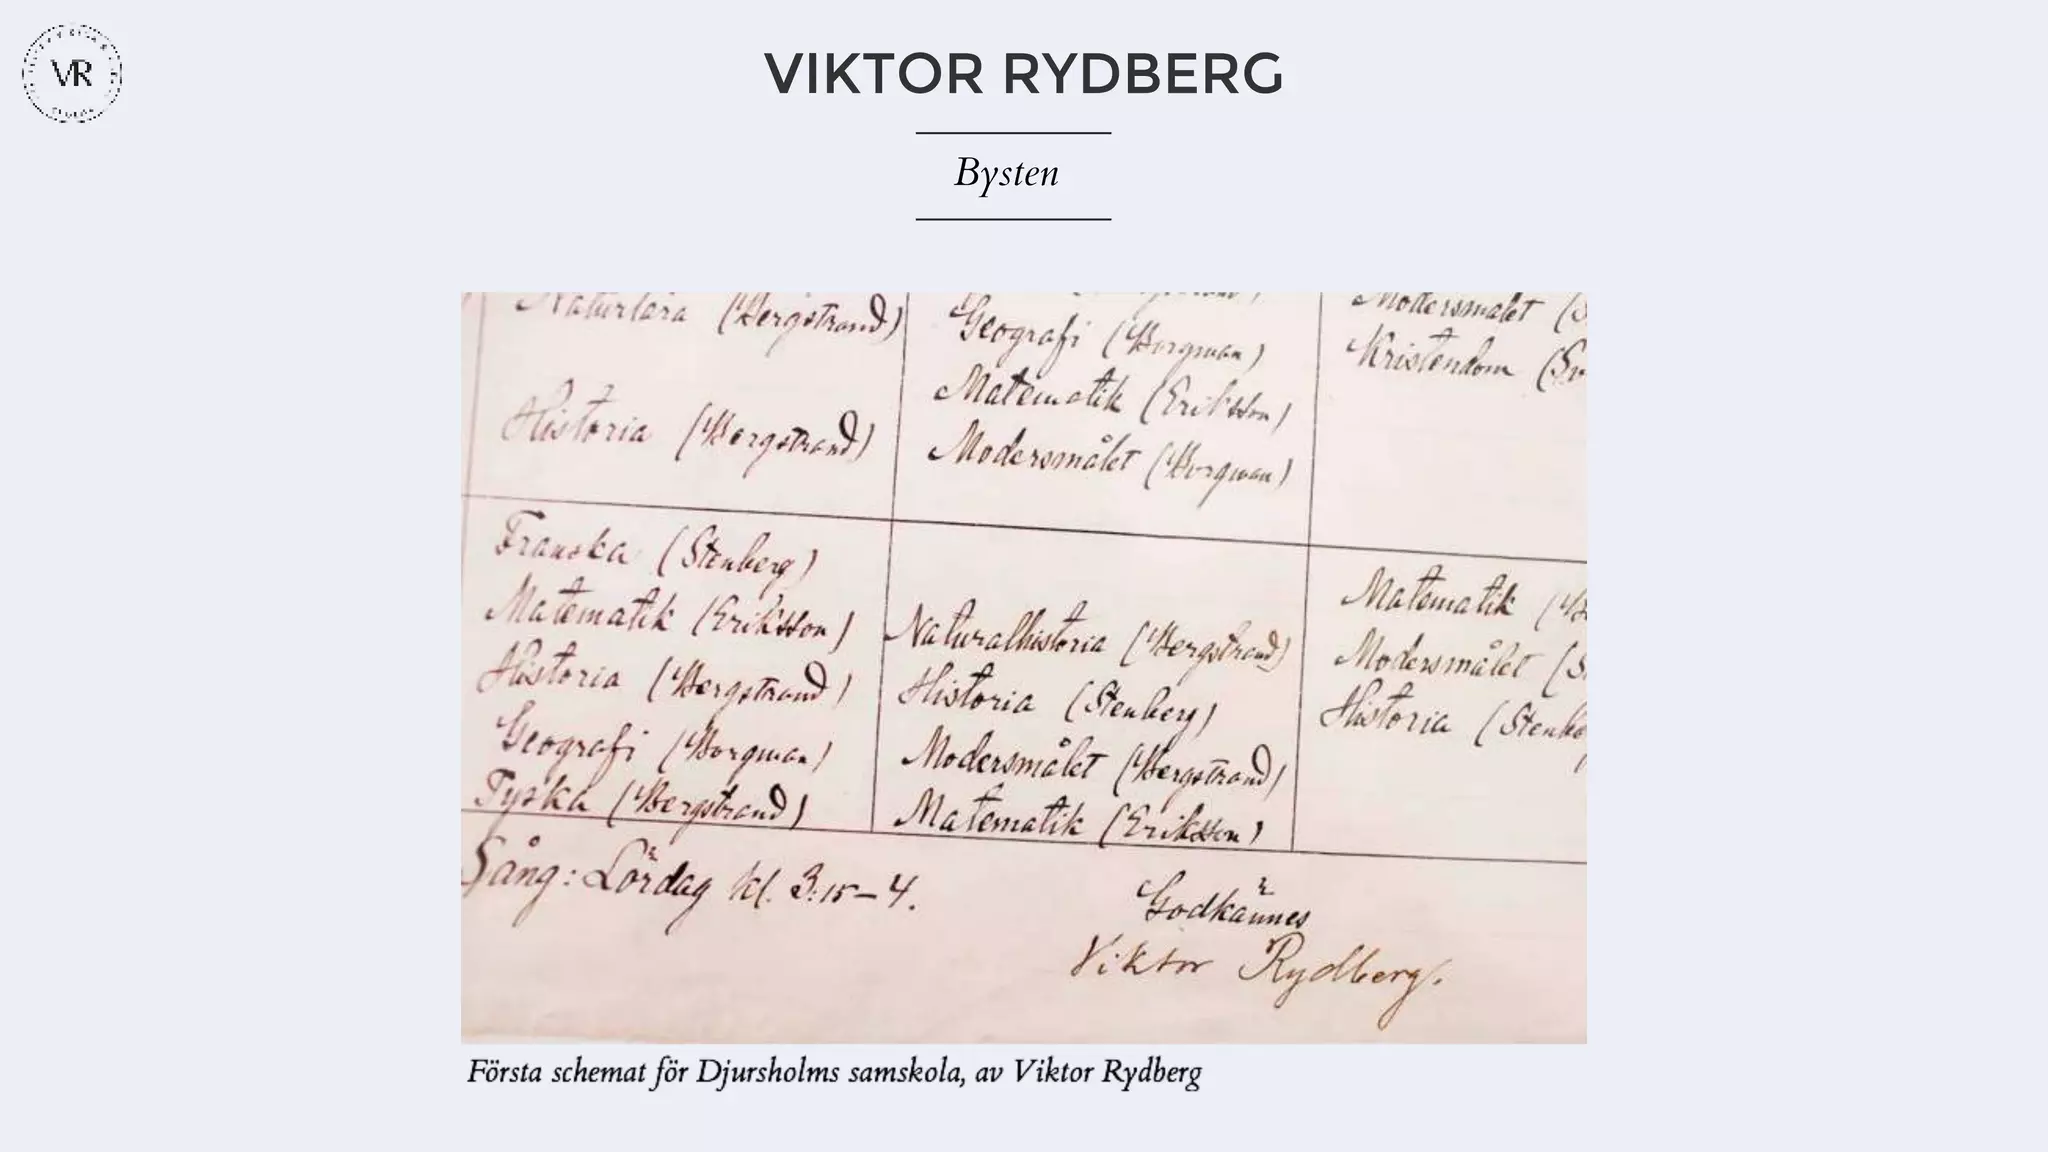 VR
VIKTOR RYDBERG
Bysten
Naturlära (Bergstrand)
Historia (Bergstrand)
Geografi (Borgman)
Matematik (Eriksson)
Modersmålet (Borgman)
Modersmålet (S
Kristendom (Sv
Franska (Stenberg)
Matematik (Eriksson)
Historia (Bergstrand)
Geografi (Borgman)
Tyska (Bergstrand)
Naturalhistoria (Bergstrand)
Historia (Stenberg)
Modersmålet (Bergstrand)
Matematik (Eriksson)
Matematik (B
Modersmålet (S
Historia (Stenbe
Sång: Lördag kl. 3:15–4.
Godkännes
Viktor Rydberg.
Första schemat för Djursholms samskola, av Viktor Rydberg